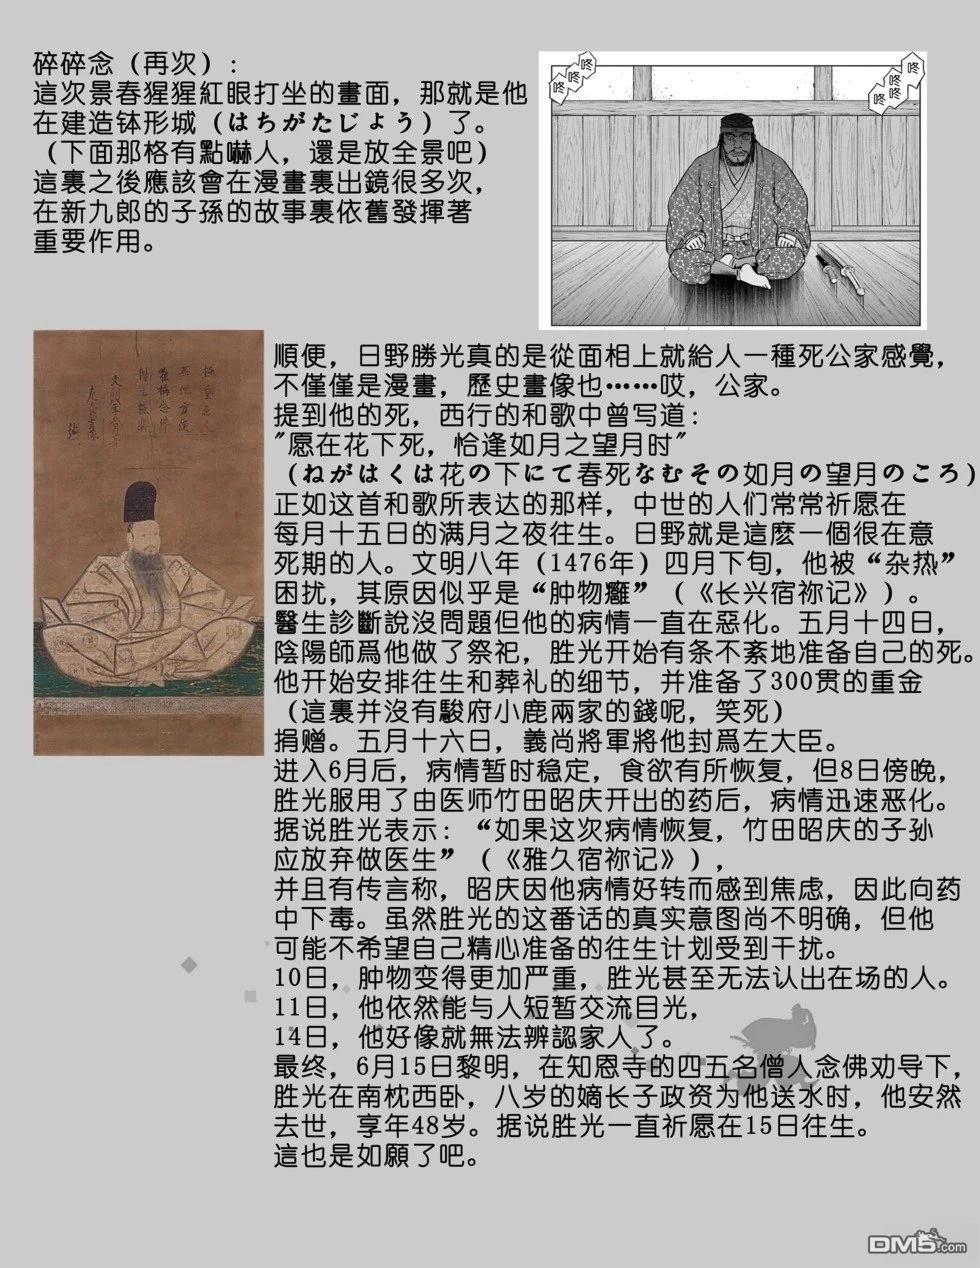 碎碎念（再次）：
這次景春猩猩紅眼打坐的畫面，那就是他
在建造钵形城（はちがたじょう）了。
（下面那格有點嚇人，還是放全景吧）
這裏之後應該會在漫畫裏出鏡很多次，
在新九郎的子孫的故事裏依舊發揮著
重要作用。
咚
咚
咚
咚
咚
咚
順便，日野勝光真的是從面相上就給人一種死公家感覺，
不僅僅是漫畫，歷史畫像也……哎，公家。
提到他的死，西行的和歌中曾写道：
"愿在花下死，恰逢如月之望月时"
（ねがはくは花の下にて春死なむその如月の望月のころ）
正如这首和歌所表达的那样，中世的人们常常祈愿在
每月十五日的满月之夜往生。日野就是這麽一個很在意
死期的人。文明八年（1476年）四月下旬，他被“杂热”
困扰，其原因似乎是“肿物癰”（《长兴宿祢记》）。
醫生診斷說沒問題但他的病情一直在惡化。五月十四日，
陰陽師爲他做了祭祀，胜光开始有条不紊地准备自己的死。
他开始安排往生和葬礼的细节，并准备了300贯的重金
（這裏并沒有駿府小鹿兩家的錢呢，笑死）
捐赠。五月十六日，義尚將軍將他封爲左大臣。
进入6月后，病情暂时稳定，食欲有所恢复，但8日傍晚，
胜光服用了由医师竹田昭庆开出的药后，病情迅速恶化。
据说胜光表示：“如果这次病情恢复，竹田昭庆的子孙
应放弃做医生”（《雅久宿祢记》），
并且有传言称，昭庆因他病情好转而感到焦虑，因此向药
中下毒。虽然胜光的这番话的真实意图尚不明确，但他
可能不希望自己精心准备的往生计划受到干扰。
10日，肿物变得更加严重，胜光甚至无法认出在场的人。
11日，他依然能与人短暂交流目光，
14日，他好像就無法辨認家人了。
最终，6月15日黎明，在知恩寺的四五名僧人念佛劝导下，
胜光在南枕西卧，八岁的嫡长子政资为他送水时，他安然
去世，享年48岁。据说胜光一直祈愿在15日往生。
這也是如願了吧。
DM5.com